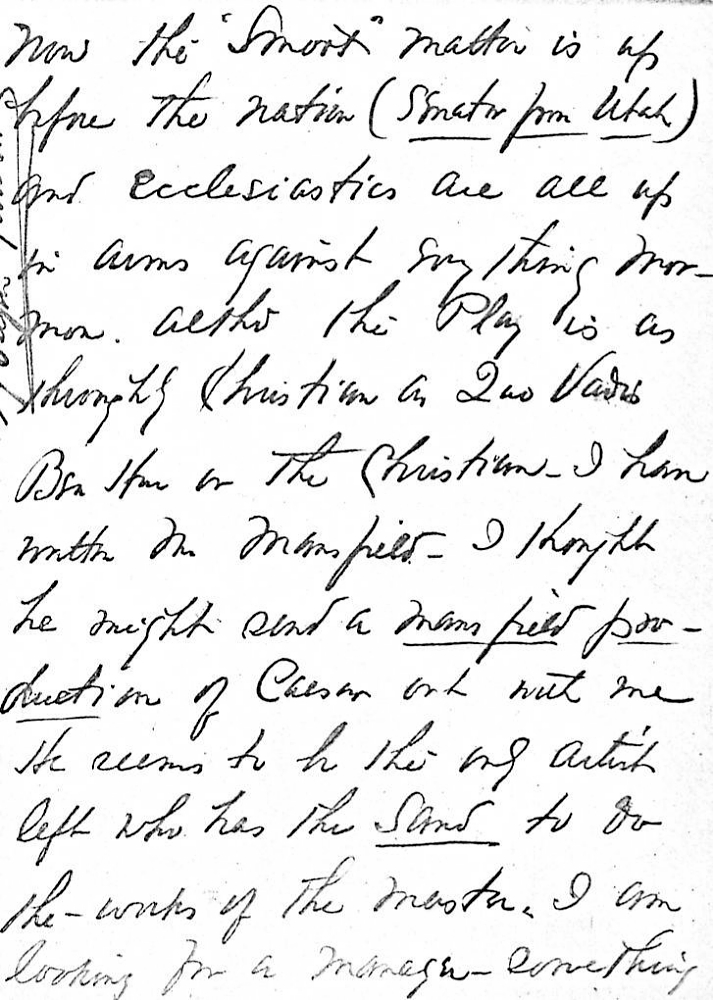 now the "Smoot" matter is up
before the nation (Senator from Utah)
and ecclesiastics are all up
in arms against everything Mor-
mon. altho the Play is as
throughly Christian as Quo Vadis
Ben Hur or The Christian - I have
written Mr Mansfield - I thought
he might send a Mansfield pro-
duction of Caesar out with me
He seems to be the only artist
left who has the Sand to do
the - works of the Master. I am
looking for a manager - something